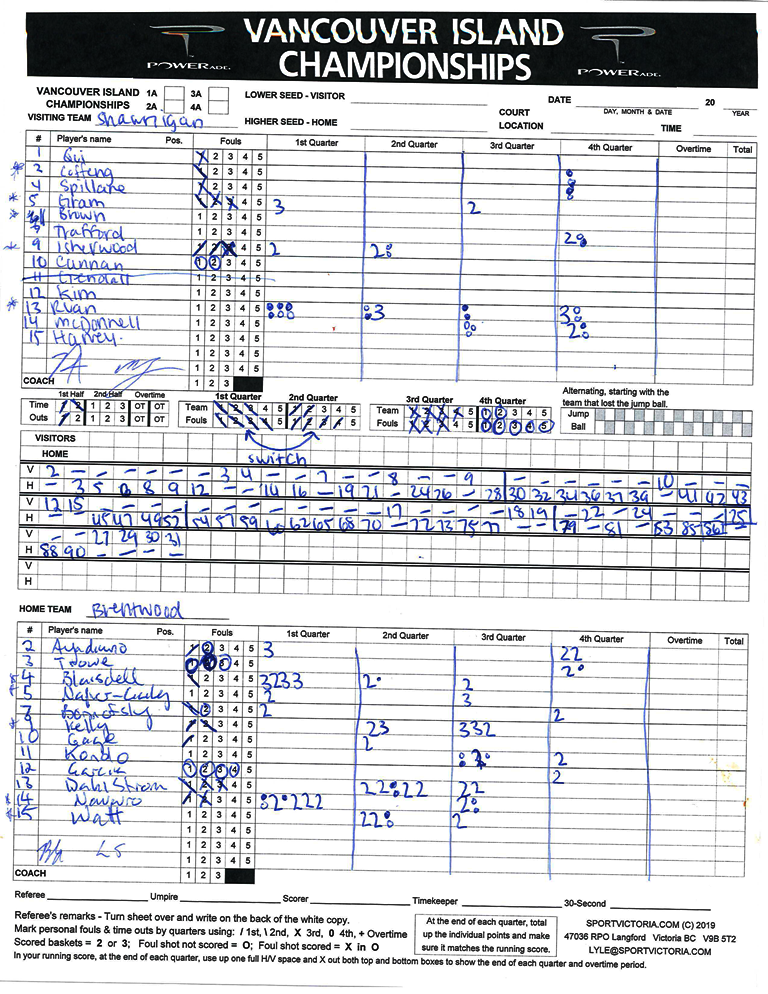 VANCOUVER ISLAND
CHAMPIONSHIPS
POWERADE.
POWERADE.
VANCOUVER ISLAND 1A 3A
CHAMPIONSHIPS 2A 4A
LOWER SEED - VISITOR
DATE
DAY, MONTH & DATE
20
YEAR
VISITING TEAM Shawnigan
HIGHER SEED - HOME
COURT
LOCATION
TIME
# Player's name Pos. Fouls 1st Quarter 2nd Quarter 3rd Quarter 4th Quarter Overtime Total
1 2 3 4 5
2
4 Spillane
5 3 2
Brown 1 2 3 4 5
Trafford 1 2 3 4 5
9 Isherwood 4 5 2 2
10 Cunnan 1 2 3 4 5
11 1 2 3 4 5
12 Kim 1 2 3 4 5
13 Ryan 1 2 3 4 5 3 3
14 McDonnell 1 2 3 4 5
15 Harvey 1 2 3 4 5 2
1 2 3 4 5
1 2 3 4 5
COACH 1 2 3
1st Half 2nd Half Overtime
Time 1 2 1 2 3 OT OT
Outs 1 2 1 2 3 OT OT
1st Quarter 2nd Quarter
Team 1 2 3 4 5 1 2 3 4 5
Fouls 1 2 3 4 5 1 2 3 4 5
switch
3rd Quarter 4th Quarter
Team 1 2 3 4 5 1 2 3 4 5
Fouls 1 2 3 4 5 1 2 3 4 5
Alternating, starting with the
team that lost the jump ball.
Jump
Ball
VISITORS
HOME
V 2 - - - - - - 3 4 - - 7 - - 8 - - 9 - - - - - 10 - - -
H - 3 5 6 8 9 12 - - 14 16 - 19 21 - 24 26 - 28 30 32 34 36 37 39 - 41 42 43
V 12 15 - - - - - - - - - - - - 17 - - - 18 19 - 22 - 24 - - - 25
H - - 45 47 49 52 54 57 59 60 62 65 68 70 - 72 73 75 77 - - 79 - 81 - 83 85 86 -
V - - 27 29 30 31
H 88 90 - - - -
V
H
HOME TEAM Brentwood
# Player's name Pos. Fouls 1st Quarter 2nd Quarter 3rd Quarter 4th Quarter Overtime Total
2 1 2 3 4 5 3 22
3 1 2 3 4 5 2
4 Blaisdell 2 3 4 5 3233 2 2
5 1 2 3 4 5 2 3
7 3 4 5 2 2
9 Kelly 3 4 5 23 332
10 Gage 2 3 4 5 2
11 Kondo 1 2 3 4 5 2
12 Garcia 1 2 3 4 5 2
13 Dahlstrom 4 5 22 22 22
14 Navarro 3 4 5 2 222 2
15 Watt 1 2 3 4 5 22 2
1 2 3 4 5
1 2 3 4 5
1 2 3 4 5
COACH 1 2 3
Referee Umpire Scorer Timekeeper 30-Second
Referee's remarks - Turn sheet over and write on the back of the white copy.
Mark personal fouls & time outs by quarters using: / 1st, \ 2nd, X 3rd, 0 4th, + Overtime
Scored baskets = 2 or 3; Foul shot not scored = O; Foul shot scored = X in O
In your running score, at the end of each quarter, use up one full H/V space and X out both top and bottom boxes to show the end of each quarter and overtime period.
At the end of each quarter, total
up the individual points and make
sure it matches the running score.
SPORTVICTORIA.COM (C) 2019
47036 RPO Langford Victoria BC V9B 5T2
LYLE@SPORTVICTORIA.COM